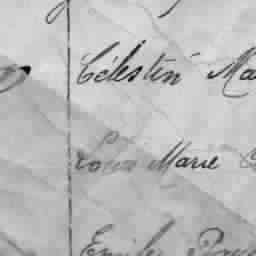 Célestin Ma
Louis Marie
Emile